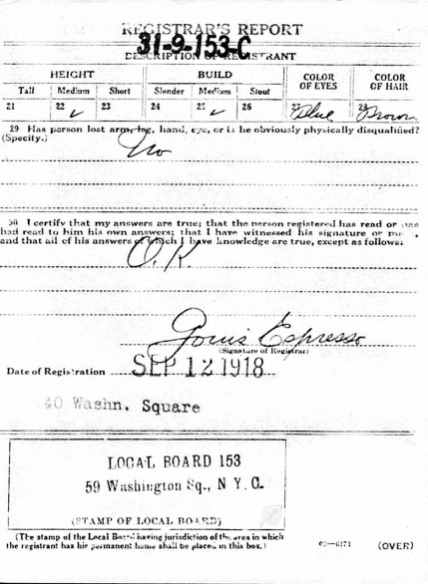 REGISTRAR'S REPORT
31-9-153-C
DESCRIPTION OF REGISTRANT
HEIGHT BUILD COLOR OF EYES COLOR OF HAIR
Tall Medium Short Slender Medium Stout
21 22 ✓ 23 24 25 ✓ 26 27 Blue 28 Brown
29 Has person lost arm, leg, hand, eye, or is he obviously physically disqualified?
(Specify.) No
30 I certify that my answers are true; that the person registered has read or has
had read to him his own answers; that I have witnessed his signature or mark,
and that all of his answers of which I have knowledge are true, except as follows:
O.K.
Louis Espresso
(Signature of Registrar)
Date of Registration SEP 12 1918
40 Washn. Square
LOCAL BOARD 153
59 Washington Sq., N Y.C.
(STAMP OF LOCAL BOARD)
(The stamp of the Local Board having jurisdiction of the area in which
the registrant has his permanent home shall be placed in this box.)
(OVER)